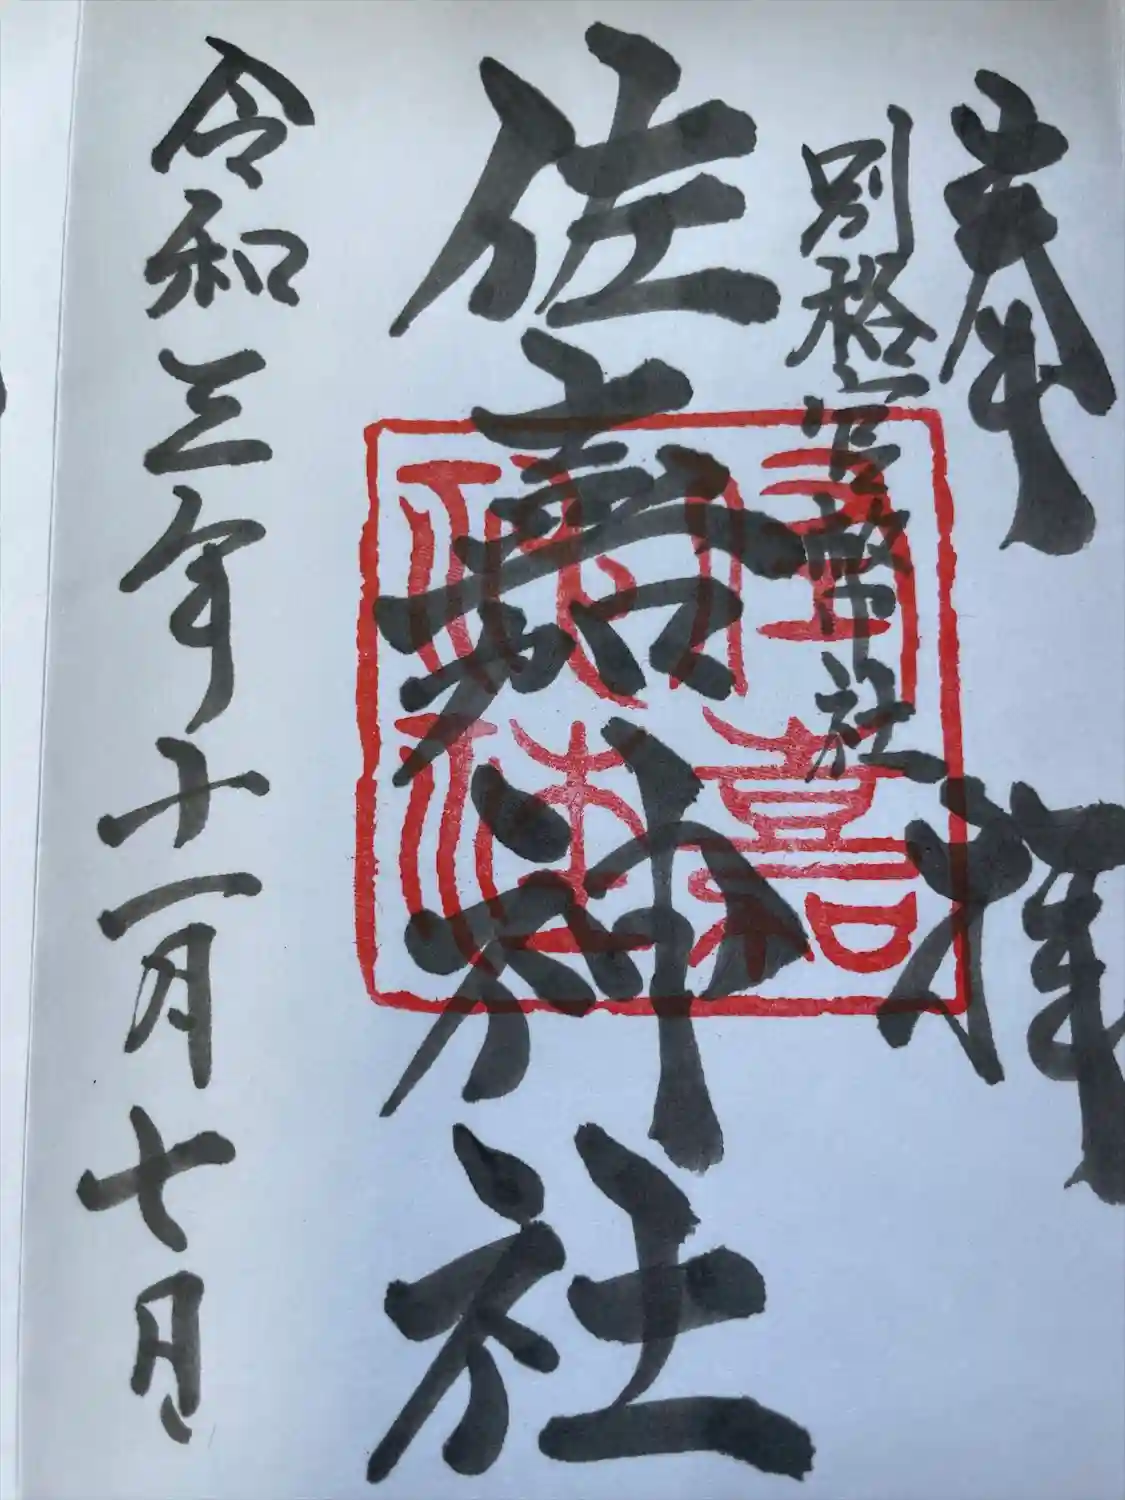 奉拝
別格官幣社
佐嘉神社
令和三年十一月七日